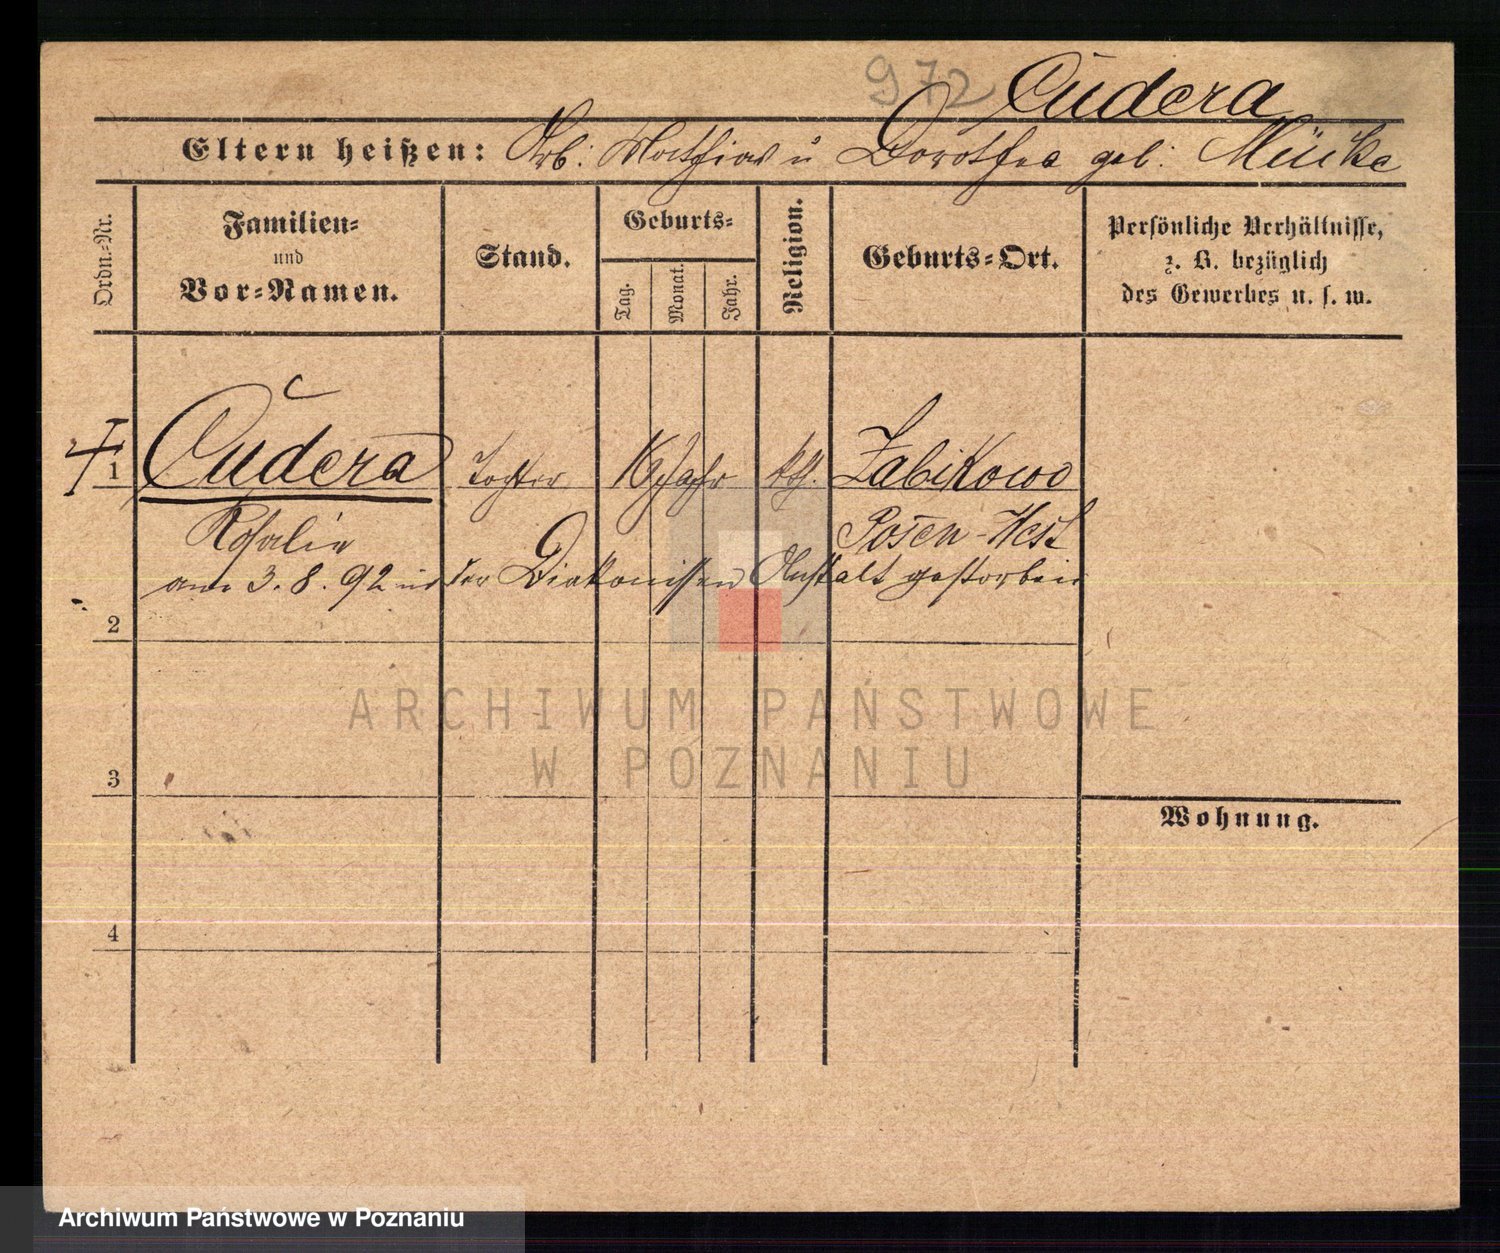 972 Cudera
Eltern heißen: Arb: Mathias u Dorothea geb: Mücke
Ordn.-Nr.
Familien-
und
Vor-Namen.
Stand.
Geburts-
Tag.
Monat.
Jahr.
Religion.
Geburts-Ort.
Persönliche Verhältnisse,
z. B. bezüglich
des Gewerbes u. s. w.
1 Cudera Tochter Jahr kth. Zabikowo
Rosalie Posen-West
am 3. 8. 92 in der Diakonissen Anstalt gestorben
2
3
4
Wohnung.
ARCHIWUM PAŃSTWOWE
W POZNANIU
Archiwum Państwowe w Poznaniu